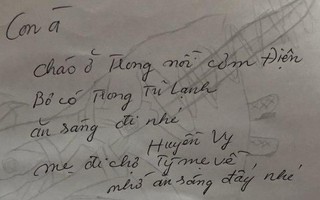 Con à
cháo ở Trong nồi cơm Điện
Bò có Trong Tủ Lạnh
ăn sáng đi nhé
Huyền Vy
mẹ đi chợ Tý mẹ về
nhớ ăn sáng đấy nhé